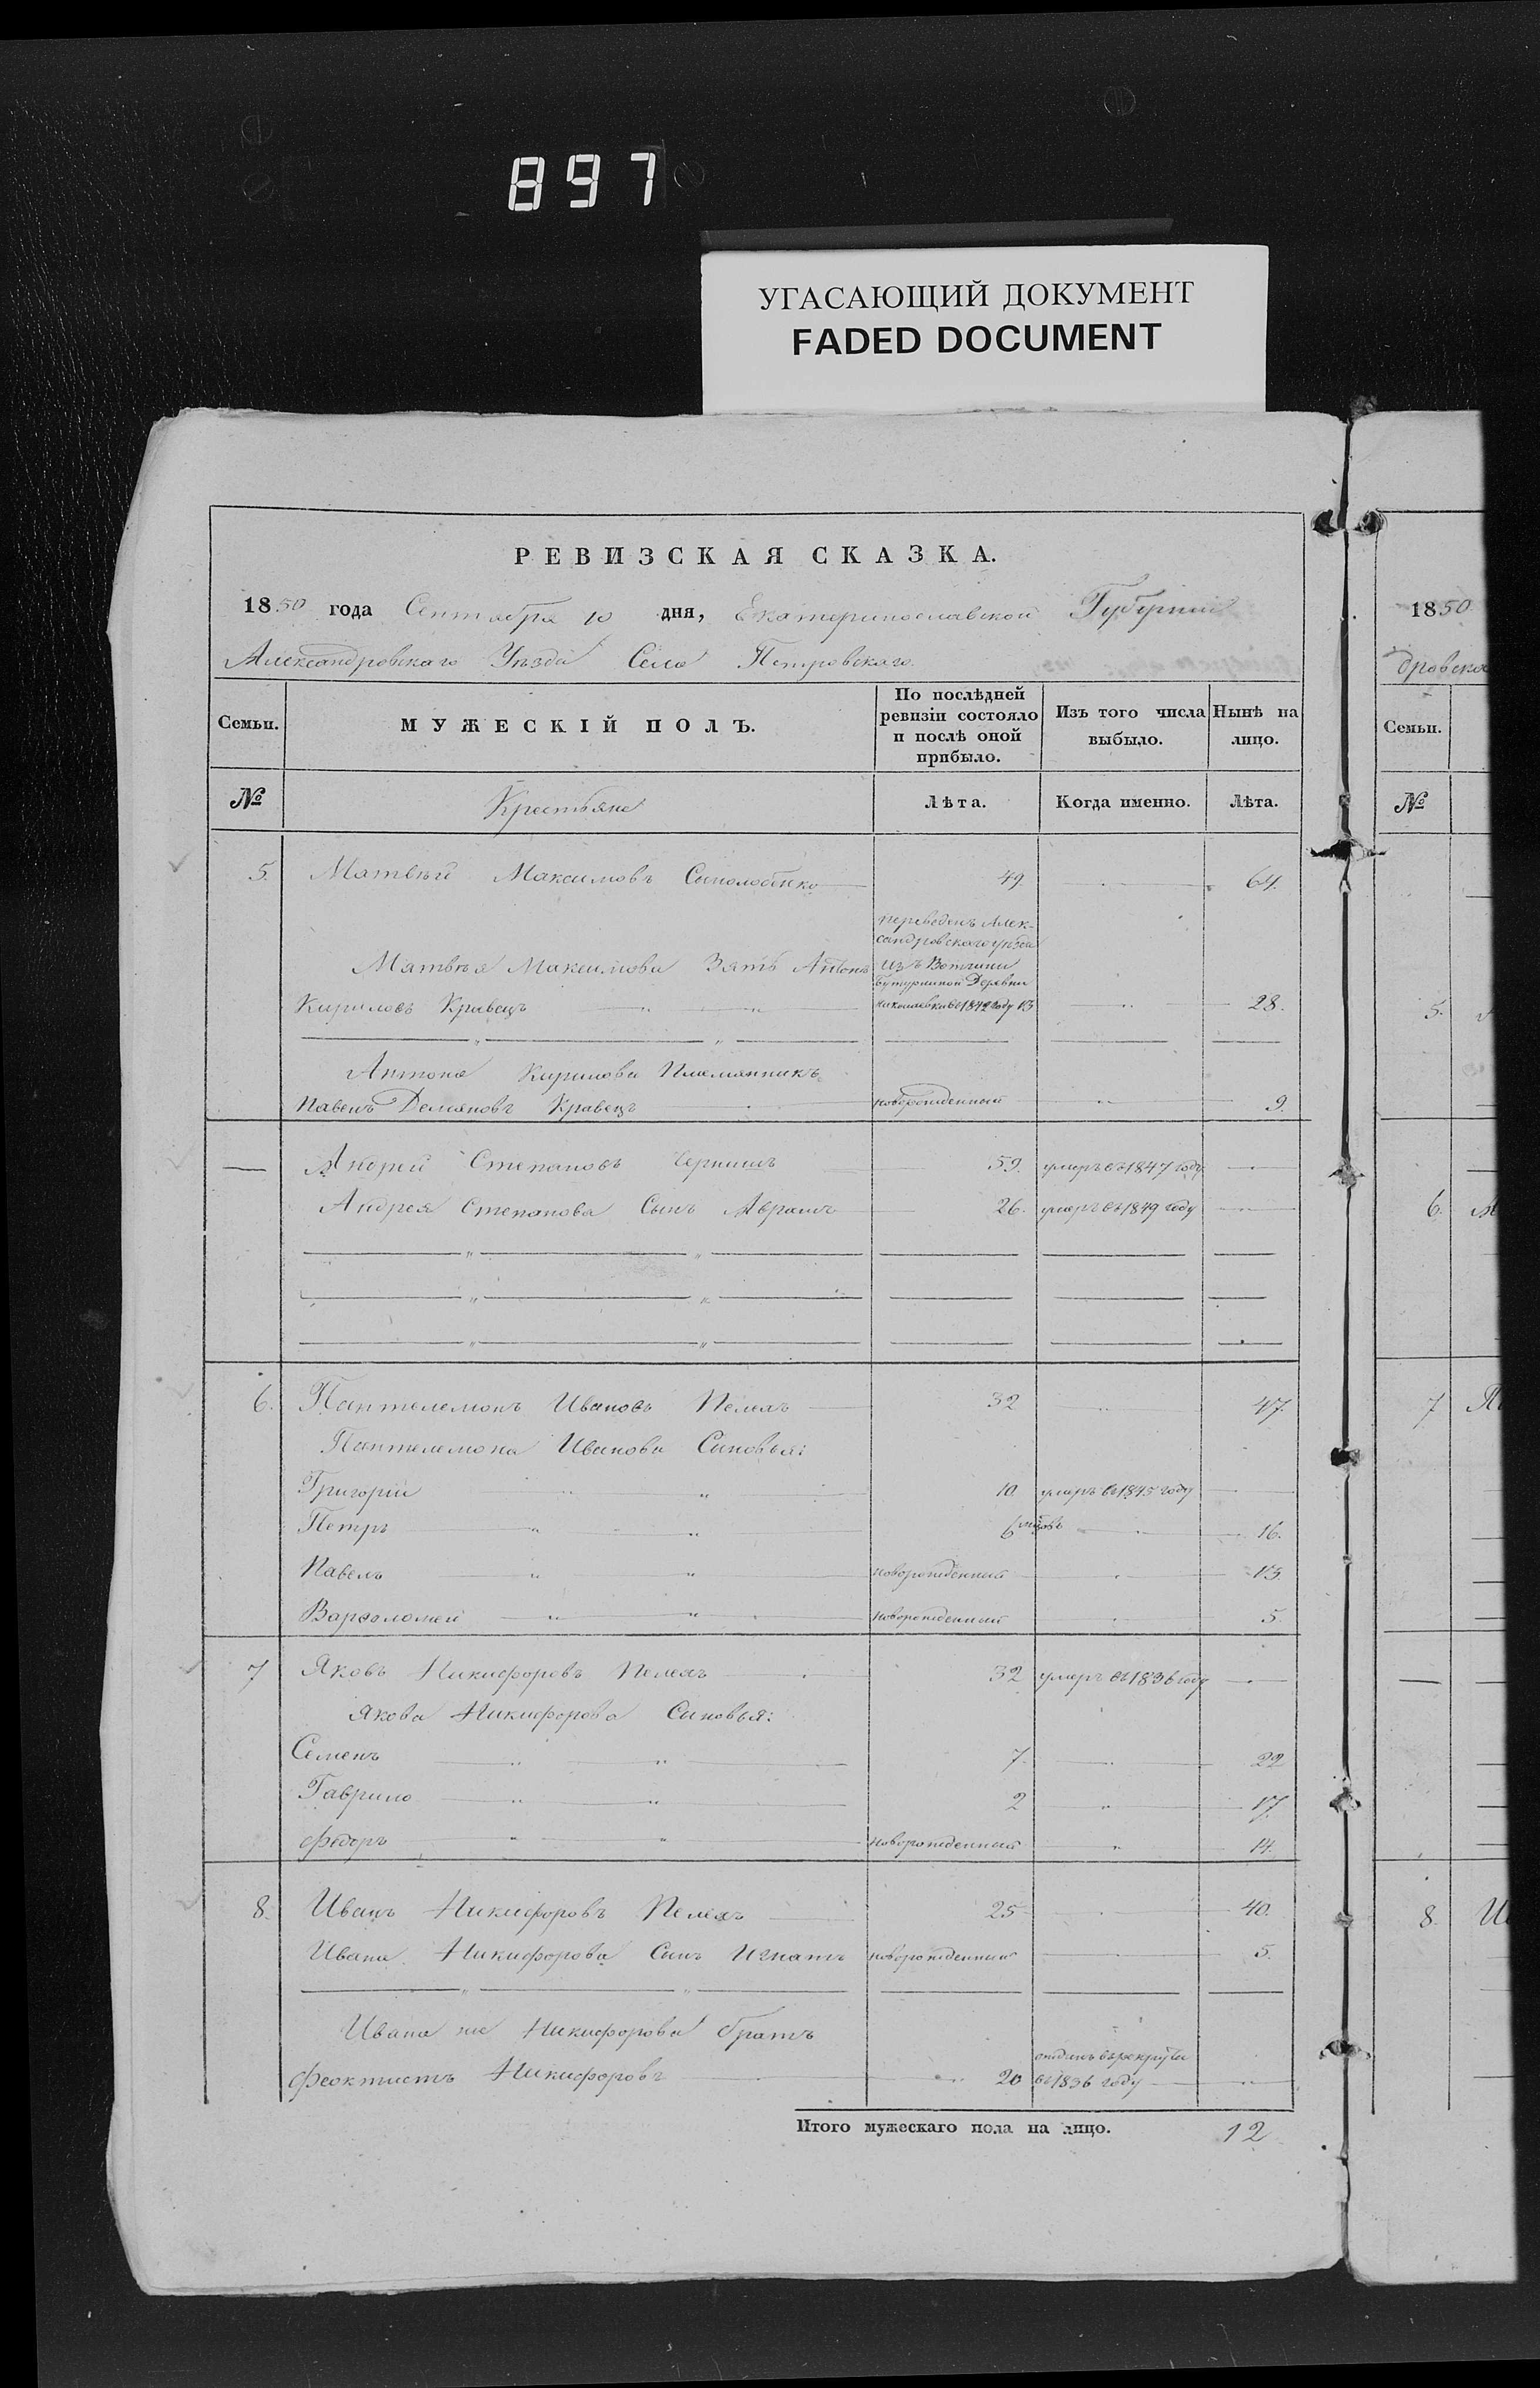 897
УГАСАЮЩИЙ ДОКУМЕНТ
FADED DOCUMENT
РЕВИЗСКАЯ СКАЗКА.
1850 года Сентября 10 дня, Екатеринославской Губернии
Александровскаго Уѣзда Села Петровскаго.
Семьи. МУЖЕСКІЙ ПОЛЪ. По послѣдней ревизіи состояло и послѣ оной прибыло. Изъ того числа выбыло. Нынѣ на лицо.
№ Крестьяне Лѣта. Когда именно. Лѣта.
5. Матвѣй Максимовъ 49. 64.
переведенъ Алек-
сандровскаго уѣзда
Матвѣя Максимова Зять Антонъ изъ Вотчины
Деревни
Кириловъ Кравецъ въ 1842 году 13 28.
Антона Кирилова Племянникъ
Павелъ Демяновъ Кравецъ новорожденный 9.
— Андрей Степановъ Чернишъ 59. умеръ въ 1847 году
Андрея Степанова Сынъ Аврамъ 26. умеръ въ 1849 году
6. Пантелемонъ Ивановъ Пелехъ 32 47.
Пантелемона Иванова Синовья:
Григорій 10 умеръ въ 1845 году
Петръ 6 16.
Павелъ новорожденный 13
Варѳоломей новорожденный 5.
7 Яковъ Никифоровъ Пелехъ 32 умеръ въ 1836 году
Якова Никифорова Синовья:
Семенъ 7. 22
Гаврило 2 17.
Федоръ новорожденный 14.
8. Иванъ Никифоровъ Пелехъ 25 40.
Ивана Никифорова Сынъ Игнатъ новорожденный 5.
Ивана же Никифорова братъ
отданъ въ рекруты
Феоктистъ Никифоровъ 20 въ 1836 году
Итого мужескаго пола на лицо. 12
1850
дровска
Семьи.
№
5.
6.
7
8.